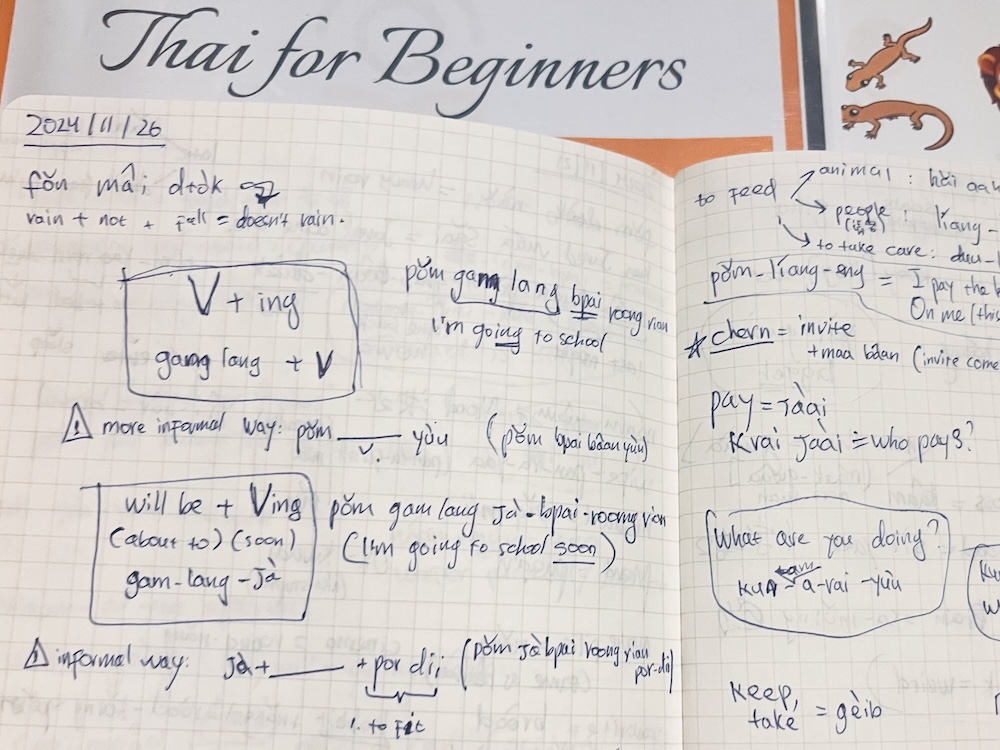 Thai for Beginners
2024/11/26
fǒn mâi dtòk
rain + not + fall = doesn't rain.
V + ing
gamg lang + V
pǒm gamg lang bpai roong rian
I'm going to school
more informal way: pǒm ____ yùu (pǒm bpai bâan yùu)
V.
will be + Ving
(about to) (soon)
gam-lang-Jà
pǒm gam lang Jà-bpai-roong rian
(I'm going to school soon)
informal way: Jà + ____ + por dii (pǒm Jà bpai roong rian
por-dii)
to fit
to FEED
animal: hâi
people:
líang-
to take care: duu-
pǒm-líang-eng = I pay the
On me (this
chern = invite
+ maa bâan (invite come
pay = Jàai
Krai Jàai = who pays?
What are you doing?
Kun tam a-rai-yùu
Keep,
take = gèib